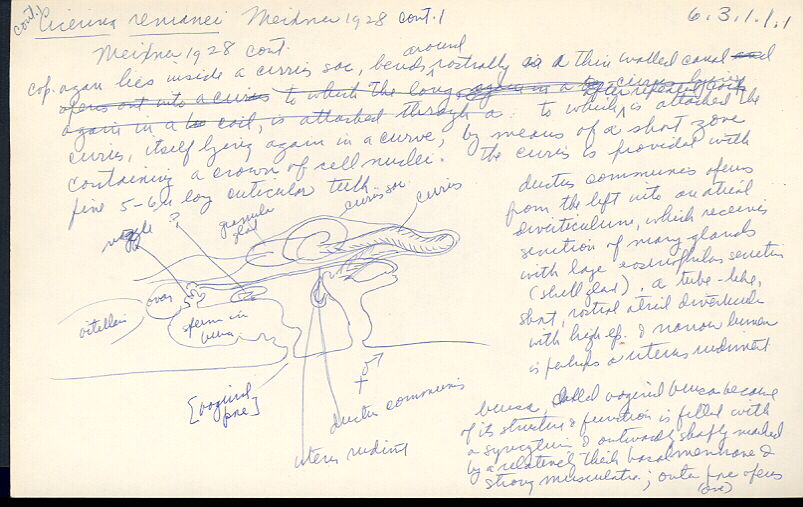 cont.) Cicerina remanei Meixner 1928 cont.)
6.3.1.1.1
Meixner 1928 cont.
around
cop. organ lies inside a cirrus sac, bends rostrally a thin walled canal and
opens out into a cirrus to which the long again in a cirrus lying
after repeated
again in a coil, is attached through a. to which is attached the
cirrus, itself lying again in a curve, by means of a short zone
containing a crown of cell nuclei. The cirrus is provided with
fine 5-6µ long cuticular teeth.
ductus communis opens
from the left into an atrial
diverticulum, which receives
secretion of many glands
with large eosinophilous secretion
(shell gland). a tube-like,
short, rostral atrial diverticula
with high ep. & narrow lumen
is perhaps a uterus rudiment
bursa, called vaginal bursa because
of its structure & function is filled with
a syncytium & outwardly sharply marked
by a relatively thick basal membrane &
strong musculature; outer pore opens
(one)
?
granular gland
cirrus sac
cirrus
vitellar
ovar
sperm in bursa
[vaginal pore]
♂
+
ductus communis
uterus rudiment